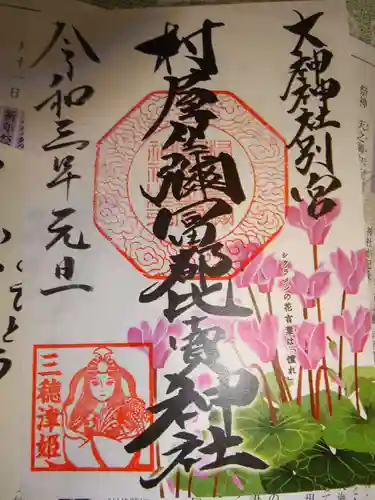 大神神社別宮
村屋坐彌冨都比賣神社
令和三年元旦
シクラメンの花言葉は「憧れ」
三穂津姫
祭神